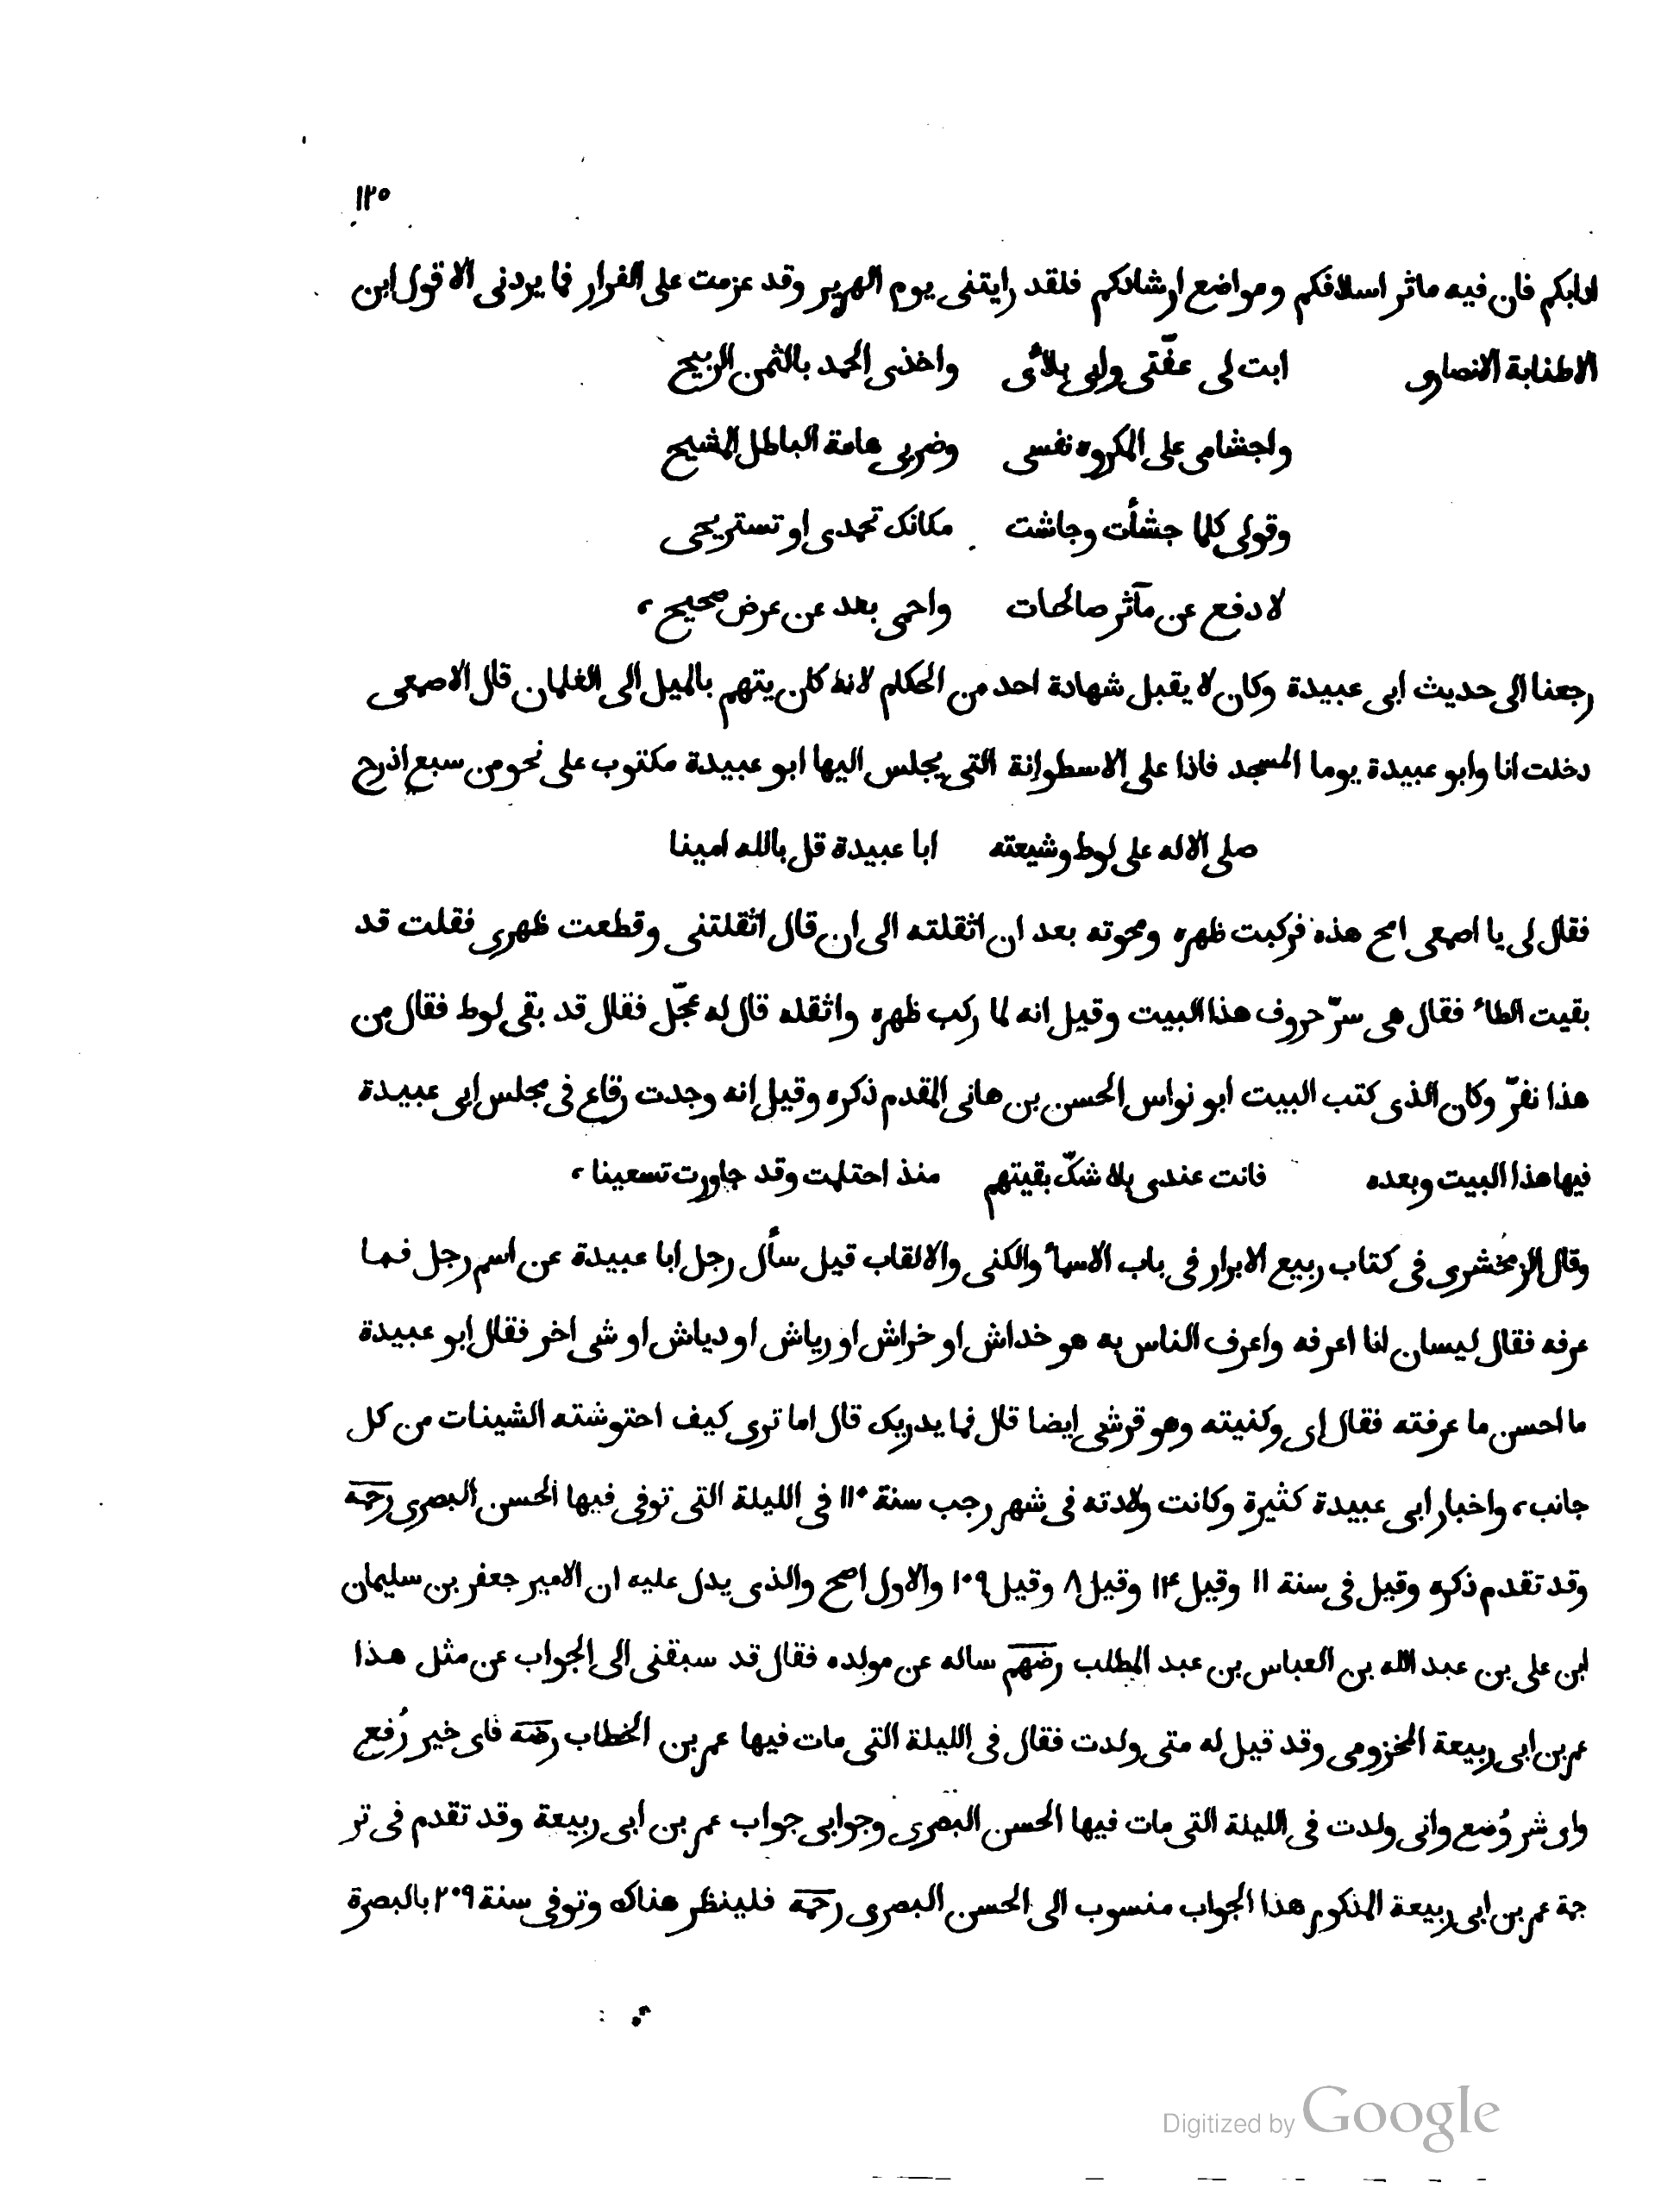 ١٢٥
ادابكم فان فيه ماثر اسلافكم ومواضع ارشادكم فلقد رايتنى يوم الهرير وقد عزمت على الفرار فما يردنى الا قول ابن
الاطنابة الانصارى ابت لى عفّتى وابى بلائى واخذى الحمد بالثمن الربيح
واجشامى على المكروه نفسى وضربى هامة الباطل المشيح
وقولى كلما جشأت وجاشت مكانك تحمدى او تستريحى
لادفع عن مآثر صالحات واحمى بعد عن عرض صحيح،
رجعنا الى حديث ابى عبيدة وكان لا يقبل شهادة احد من الحكام لانه كان يتهم بالميل الى الغلمان قال الاصمعى
دخلت انا وابو عبيدة يوما المسجد فاذا على الاسطوانة التى يجلس اليها ابو عبيدة مكتوب على نحو من سبع اذرع
صلى الاله على لوط وشيعته ابا عبيدة قل بالله امينا
فقال لى يا اصمعى امح هذه فركبت ظهره ومحوته بعد ان اثقلته الى ان قال اثقلتنى وقطعت ظهرى فقلت قد
بقيت الطاء فقال هى سرّ حروف هذا البيت وقيل انه لما ركب ظهره واثقله قال له عجّل فقال قد بقى لوط فقال من
هذا نفرّ وكان الذى كتب البيت ابو نواس الحسن بن هانى المقدم ذكره وقيل انه وجدت رقاع فى مجلس ابى عبيدة
فيها هذا البيت وبعده فانت عندى بلا شكّ بقيتهم منذ احتلمت وقد جاورت تسعينا،
وقال الزمخشرى فى كتاب ربيع الابرار فى باب الاسماء والكنى والالقاب قيل سأل رجل ابا عبيدة عن اسم رجل فما
عرفه فقال ليسان انا اعرفه واعرف الناس به هو خداش او خراش او رياش او دياش او شى اخر فقال ابو عبيدة
ما احسن ما عرفته فقال اى وكنيته وهو قرشى ايضا قال فما يدريك قال اما ترى كيف احتوشته الشينات من كل
جانب، واخبار ابى عبيدة كثيرة وكانت ولادته فى شهر رجب سنة ١١٠ فى الليلة التى توفى فيها الحسن البصرى رحمه
وقد تقدم ذكره وقيل فى سنة ١١ وقيل ١١٤ وقيل ٨ وقيل ١٠٩ والاول اصح والذى يدل عليه ان الامير جعفر بن سليمان
ابن على بن عبد الله بن العباس بن عبد المطلب رضهم ساله عن مولده فقال قد سبقنى الى الجواب عن مثل هذا
عمر بن ابى ربيعة المخزومى وقد قيل له متى ولدت فقال فى الليلة التى مات فيها عمر بن الخطاب رضه فاى خير رُفع
واى شر وُضع وانى ولدت فى الليلة التى مات فيها الحسن البصرى وجوابى جواب عمر بن ابى ربيعة وقد تقدم فى تر
جمة عمر بن ابى ربيعة المذكور هذا الجواب منسوب الى الحسن البصرى رحمه فلينظر هناك وتوفى سنة ٢٠٩ بالبصرة
Digitized by Google